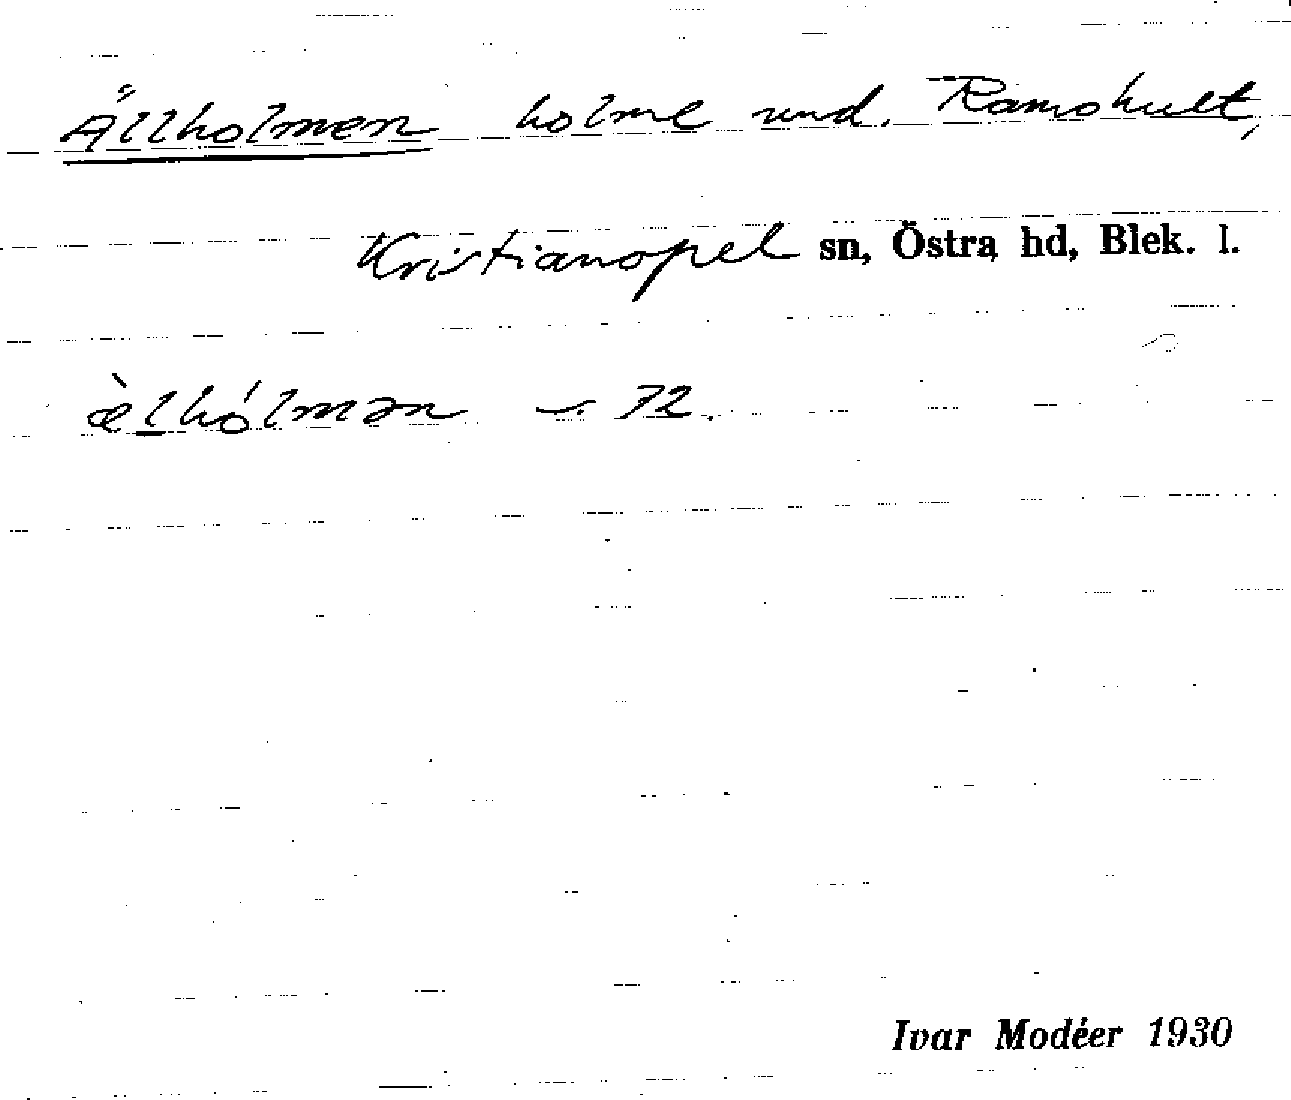 Ällholmen holme und. Ramshult,
Kristianopel sn, Östra hd, Blek. l.
æ̀lhólmən – 72.
Ivar Modéer 1930